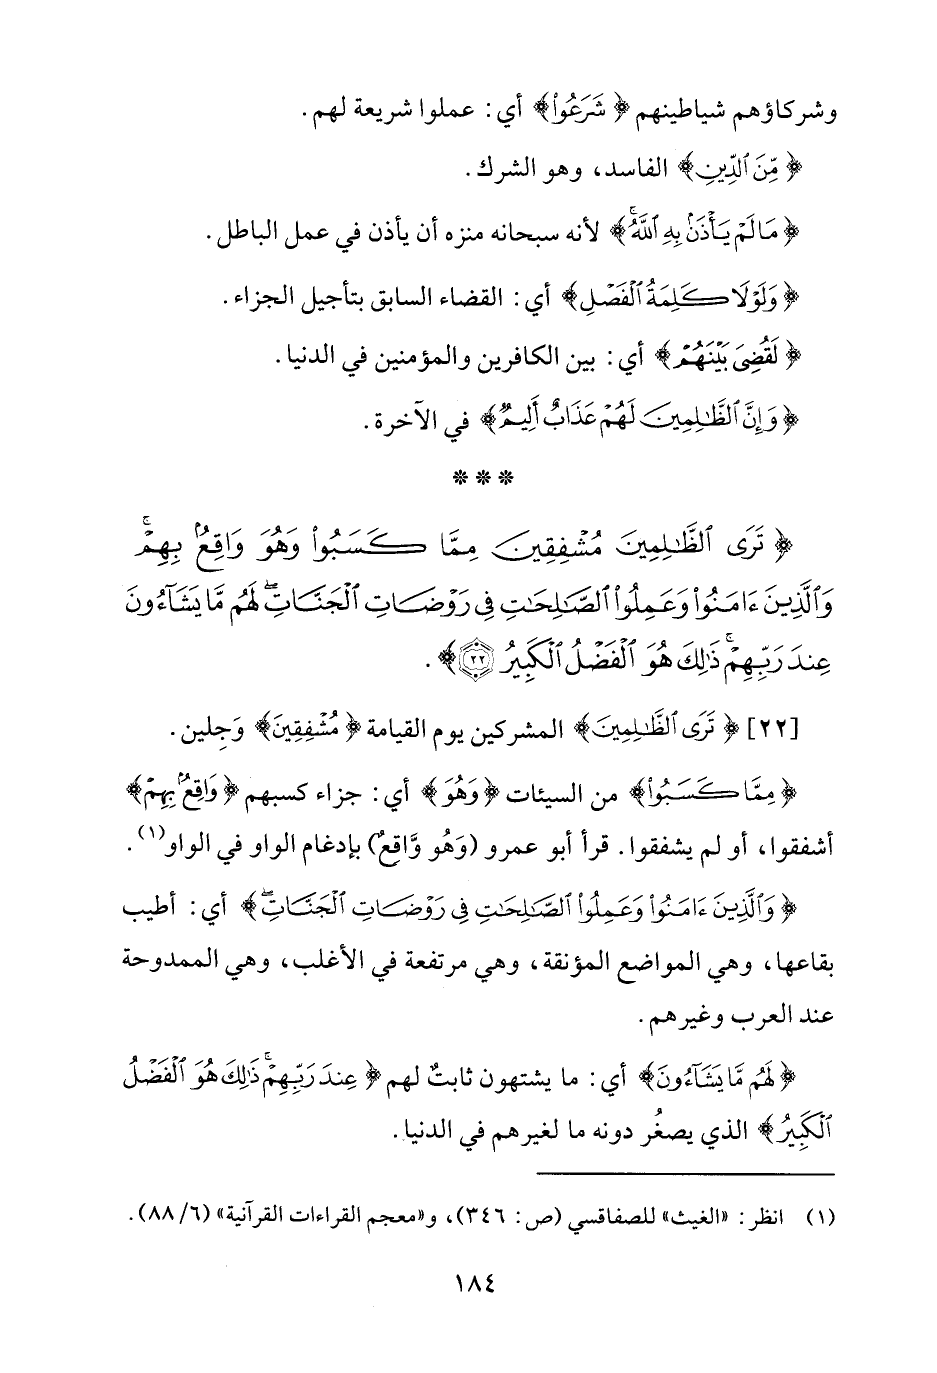 وشركاؤهم شياطينهم ﴿ شَرَعُوا۟ ﴾ أي: عملوا شريعة لهم.
﴿ مِّنَ ٱلدِّينِ ﴾ الفاسد، وهو الشرك.
﴿ مَا لَمْ يَأْذَنۢ بِهِ ٱللَّهُ ۚ ﴾ لأنه سبحانه منزه أن يأذن في عمل الباطل.
﴿ وَلَوْلَا كَلِمَةُ ٱلْفَصْلِ ﴾ أي: القضاء السابق بتأجيل الجزاء.
﴿ لَقُضِىَ بَيْنَهُمْ ﴾ أي: بين الكافرين والمؤمنين في الدنيا.
﴿ وَإِنَّ ٱلظَّٰلِمِينَ لَهُمْ عَذَابٌ أَلِيمٌ ﴾ في الآخرة.
* * *
﴿ تَرَى ٱلظَّٰلِمِينَ مُشْفِقِينَ مِمَّا كَسَبُوا۟ وَهُوَ وَاقِعٌۢ بِهِمْ ۗ
وَٱلَّذِينَ ءَامَنُوا۟ وَعَمِلُوا۟ ٱلصَّٰلِحَٰتِ فِى رَوْضَاتِ ٱلْجَنَّاتِ ۖ لَهُم مَّا يَشَآءُونَ
عِندَ رَبِّهِمْ ۚ ذَٰلِكَ هُوَ ٱلْفَضْلُ ٱلْكَبِيرُ ٢٢ ﴾.
[٢٢] ﴿ تَرَى ٱلظَّٰلِمِينَ ﴾ المشركين يوم القيامة ﴿ مُشْفِقِينَ ﴾ وَجِلين.
﴿ مِمَّا كَسَبُوا۟ ﴾ من السيئات ﴿ وَهُوَ ﴾ أي: جزاء كسبهم ﴿ وَاقِعٌۢ بِهِمْ ﴾
أشفقوا، أو لم يشفقوا. قرأ أبو عمرو (وَهُو وَّاقعٌ) بإدغام الواو في الواو(١).
﴿ وَٱلَّذِينَ ءَامَنُوا۟ وَعَمِلُوا۟ ٱلصَّٰلِحَٰتِ فِى رَوْضَاتِ ٱلْجَنَّاتِ ۖ ﴾ أي: أطيب
بقاعها، وهي المواضع المؤنقة، وهي مرتفعة في الأغلب، وهي الممدوحة
عند العرب وغيرهم.
﴿ لَهُم مَّا يَشَآءُونَ ﴾ أي: ما يشتهون ثابتٌ لهم ﴿ عِندَ رَبِّهِمْ ۚ ذَٰلِكَ هُوَ ٱلْفَضْلُ
ٱلْكَبِيرُ ﴾ الذي يصغُر دونه ما لغيرهم في الدنيا.
(١) انظر: «الغيث» للصفاقسي (ص: ٣٤٦)، و«معجم القراءات القرآنية» (٦/ ٨٨).
١٨٤